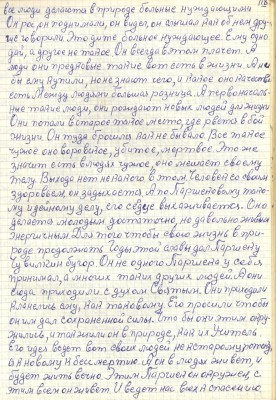 118
все люди делаются в природе больные нуждающими
Он рос, он поднимался, он видел, он слышал как об нем дру
гие говорили. Это дитё больное нуждающее. Ему одно
дай, а другое не такое. Он всегда в этом плачет. А
люди они природные такие вот есть в жизни. А не
бы ему купили, но не знает чего, и какое оно качество
есть. Между людями большая разница. А первоначаль
ные такие люди, они рождают новых людей для жизни
Они попали в старое такое место, где рвется в бой
жизни. Он туда бросился как не бывало. Все такое
чужое оно ворованое, убитое, мертвое. Это же
значит есть в людях чужое, оно мешает своему
телу. Выхода нет не какого в этом. Человек со своим
здоровьем, он задыхается. А по Паршековому тако
му идейному делу, его сердце выкаживается. Оно
делается молодым достаточно, но довольно живым
энергичным. Для того чтобы свою жизнь в при
роде продолжать. Чтобы этой славы дал Паршеку
Чувилкин бугор. Он не одного Паршека у себя
принимал, а многих таких других людей. А они
сюда приходили с духом Святым. Они приходили
кланялись ему, как таковому. Его просили чтобы
он им дал сохраненной силы. Что бы они этим окру
жились, и так жили они в природе, как их Учитель.
Его идея ведет вот своих людей не по старому потоку,
а к новому к бессмертию. А он в людях живет, и
будет жить вечно. Этим Паршек он окружен, с
этим всем он живет. И ведет нас всех к спасению.